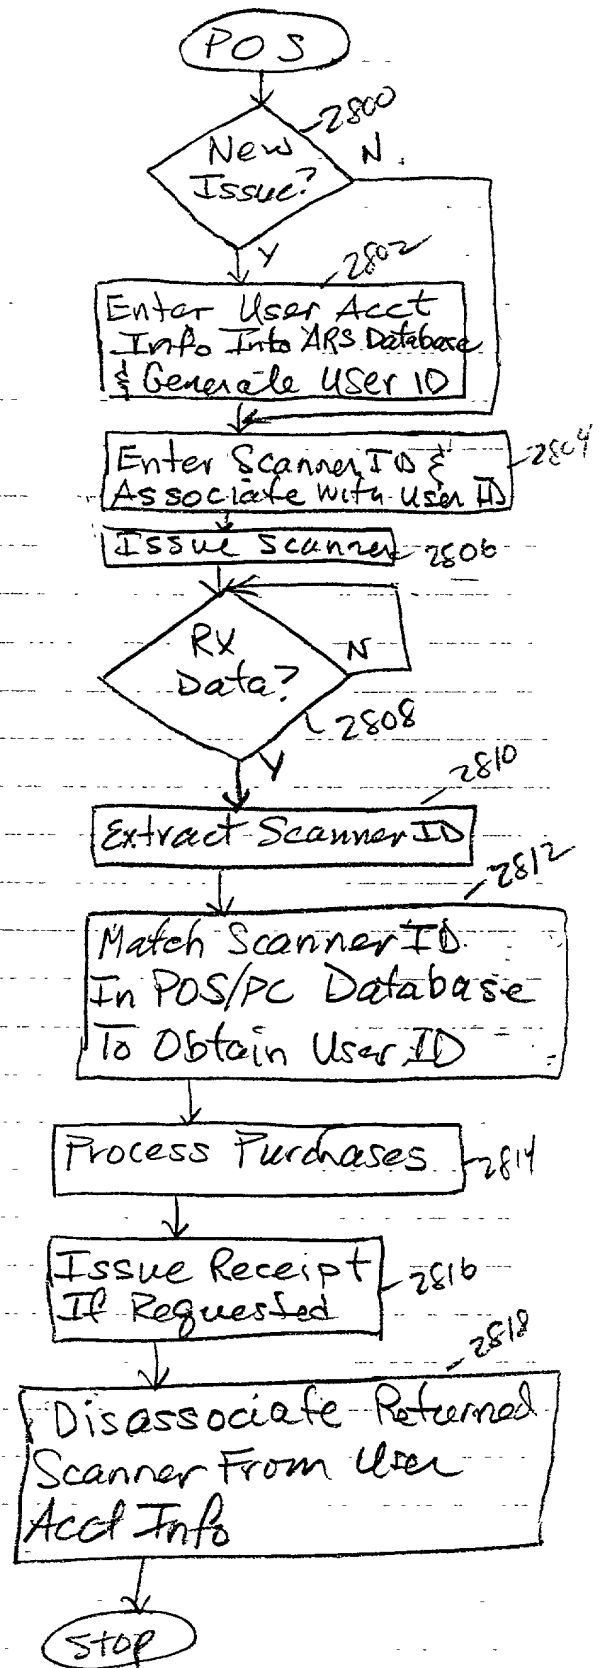 POS
2800
New
Issue?
N.
Y
2802
Enter User Acct
Info Into ARS Database
& Generate User ID
Enter Scanner ID &
Associate with User ID
2804
Issue Scanner
2806
RX
Data?
N
2808
Y
2810
Extract Scanner ID
2812
Match Scanner ID
In POS/PC Database
To Obtain User ID
Process Purchases
2814
Issue Receipt
If Requested
2816
2818
Disassociate Returned
Scanner From User
Acct Info
Stop